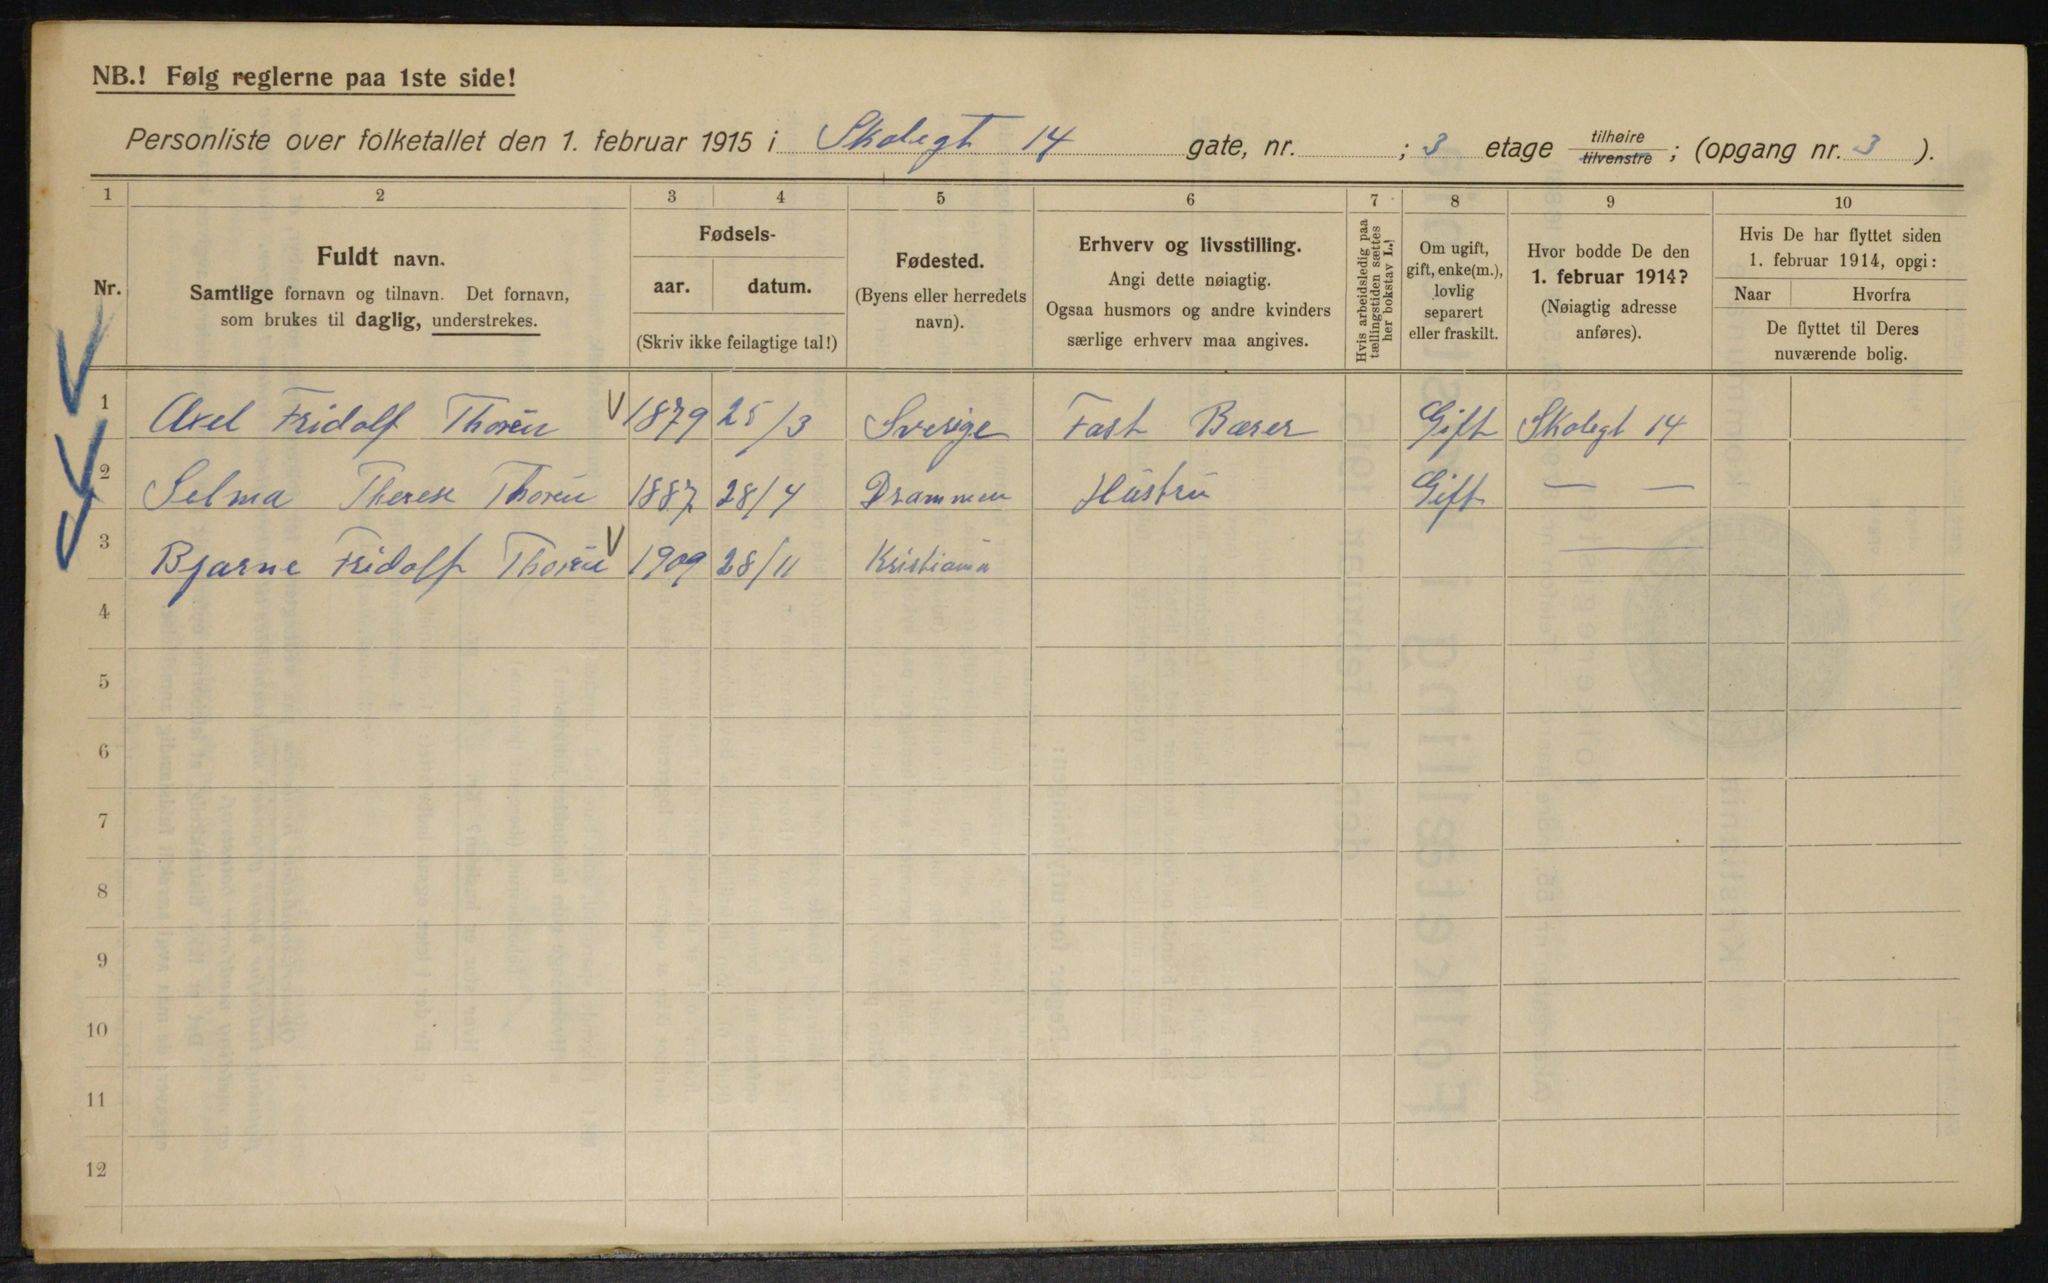 NB.! Følg reglerne paa 1ste side!
Personliste over folketallet den 1. februar 1915 i Skolegt 14 gate, nr. ; 3 etage tilhøire tilvenstre ; (opgang nr. 3 ).
1 2 3 4 5 6 7 8 9 10
Nr.
Fuldt navn.
Samtlige fornavn og tilnavn. Det fornavn,
som brukes til daglig, understrekes.
Fødsels-
aar. datum.
(Skriv ikke feilagtige tal!)
Fødested.
(Byens eller herredets
navn).
Erhverv og livsstilling.
Angi dette nøiagtig.
Ogsaa husmors og andre kvinders
særlige erhverv maa angives.
Hvis arbeidsledig paa
tællingstiden sættes
her bokstav L.
Om ugift,
gift, enke(m.),
lovlig
separert
eller fraskilt.
Hvor bodde De den
1. februar 1914?
(Nøiagtig adresse
anføres).
Hvis De har flyttet siden
1. februar 1914, opgi:
Naar Hvorfra
De flyttet til Deres
nuværende bolig.
1 Axel Fridolf Thorén 1879 25/3 Sverige Fast Bærer Gift Skolegt 14
2 Selma Therese Thorén 1887 28/4 Drammen Hustru Gift — —
3 Bjarne Fridolf Thorén 1909 28/11 Kristiania —
4
5
6
7
8
9
10
11
12